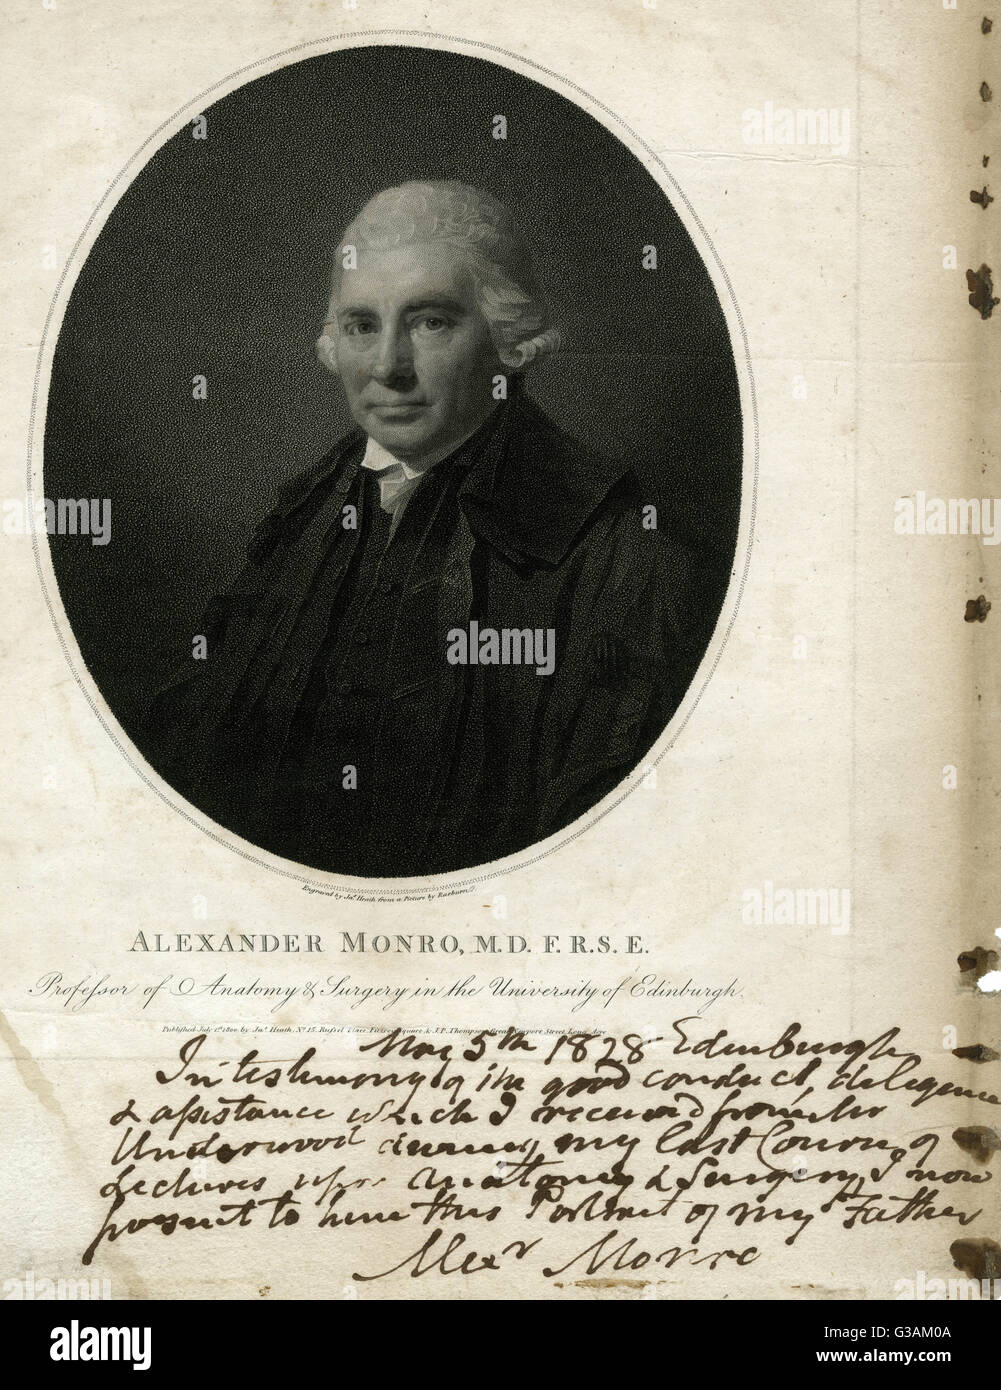 Engraved by Jas. Heath from a Picture by Raeburn
ALEXANDER MONRO, M.D. F.R.S.E.
Professor of Anatomy & Surgery in the University of Edinburgh.
Published July 1st 1800, by Jas. Heath, No. 15, Russel Place, Fitzroy Square, & J.P. Thompson, Great Newport Street, Long Acre
May 5th 1828 Edinburgh
In testimony of the good conduct, deligence
& assistance which I received from Mr
Underwood during my last Course of
Lectures upon Anatomy & Surgery, I now
present to him this Portrait of my Father
Alexr Monro
alamy
alamy stock photo
G3AM0A
www.alamy.com